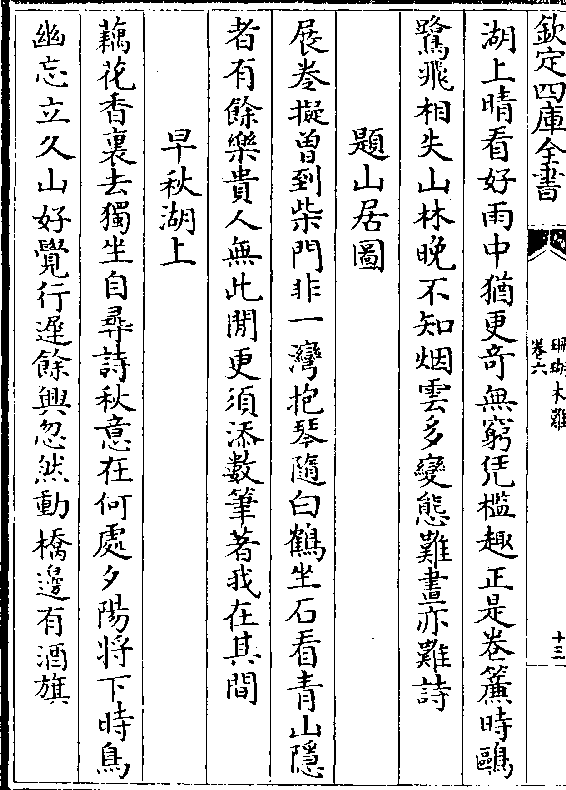 欽定四庫全書
珊瑚木難
卷六
十三
湖上晴看好雨中猶更奇無窮凭檻趣正是卷簾時鷗
鷺飛相失山林晚不知烟雲多變態難畫亦難詩
題山居圖
展卷擬曽到柴門非一灣抱琴隨白鶴坐石看青山隱
者有餘樂貴人無此閒更須添數筆著我在其間
早秋湖上
藕花香裏去獨坐自尋詩秋意在何處夕陽將下時鳥
幽忘立久山好覺行遲餘興忽然動橋邊有酒旗